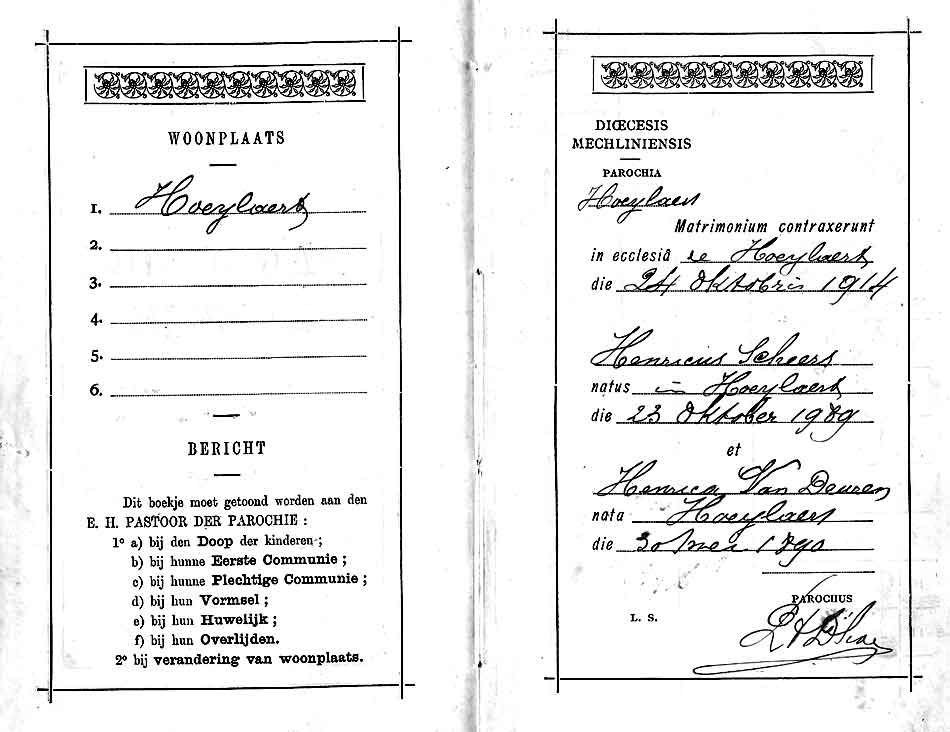 WOONPLAATS
1. Hoeylaert
2.
3.
4.
5.
6.
BERICHT
Dit boekje moet getoond worden aan den
E. H. PASTOOR DER PAROCHIE :
1º a) bij den Doop der kinderen ;
b) bij hunne Eerste Communie ;
c) bij hunne Plechtige Communie ;
d) bij hun Vormsel ;
e) bij hun Huwelijk ;
f) bij hun Overlijden.
2º bij verandering van woonplaats.
DIŒCESIS
MECHLINIENSIS
PAROCHIA
Hoeylaert
Matrimonium contraxerunt
in ecclesiâ de Hoeylaert
die 24 Oktobris 1914
Henricus Scheers
natus in Hoeylaert
die 23 Oktober 1989
et
Henrica Van Deuren
nata Hoeylaert
die 30 Mei 1890
PAROCHUS
L. S.